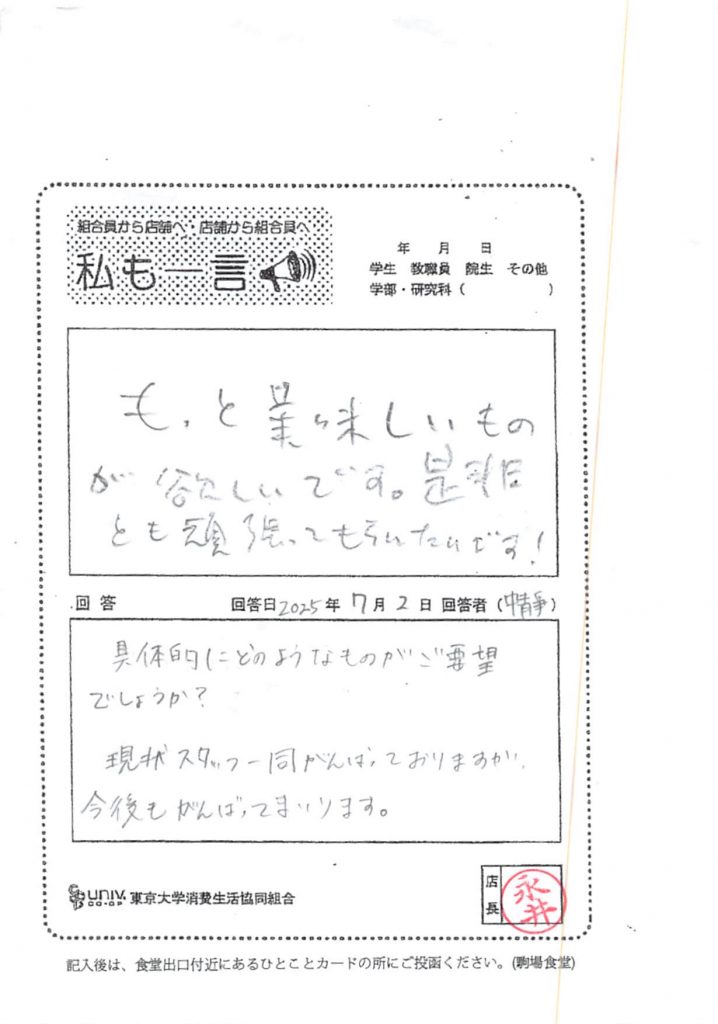 組合員から店舗へ・店舗から組合員へ
私も一言
年 月 日
学生 教職員 院生 その他
学部・研究科（ ）
もっと美味しいもの
が欲しいです。是非
とも頑張ってもらいたいです！
回答 回答日2025年7月2日 回答者（ ）
具体的にどのようなものがご要望
でしょうか？
現状スタッフ一同がんばっておりますが、
今後もがんばってまいります。
univ. CO-OP 東京大学消費生活協同組合
店長 永井
記入後は、食堂出口付近にあるひとことカードの所にご投函ください。(駒場食堂)